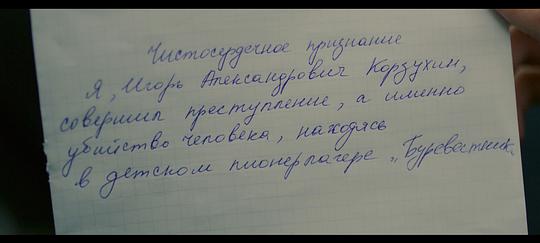 Чистосердечное признание
Я, Игорь Александрович Корзухин,
совершил преступление, а именно
убийство человека, находясь
в детском пионерлагере „Буревестник